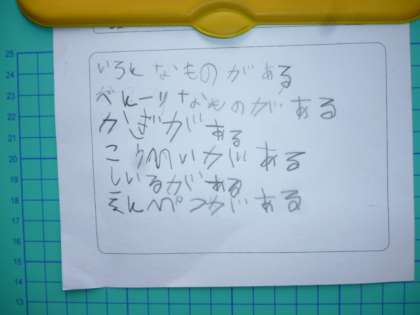 いろんなものがある
べんーりなものがある
かぎがある
がある
しいるがある
えんぺつがある
25
24
23
22
21
20
19
18
17
16
15
14
13